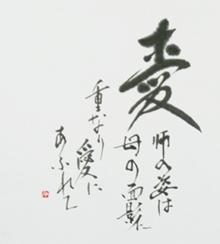 愛
師の姿は
母の面影に
重なり
愛に
あふれて